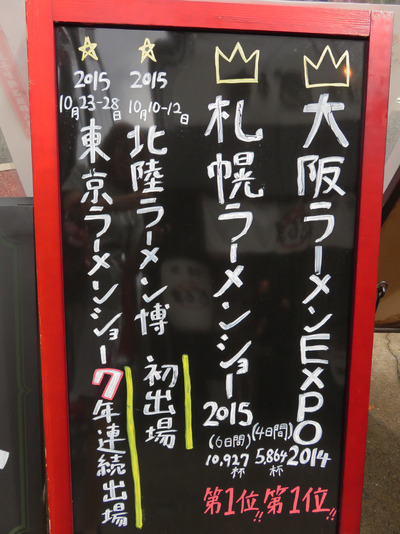 大阪ラーメンEXPO2014
(4日間)
5,864杯
第1位!!
札幌ラーメンショー2015
(6日間)
10,927杯
第1位!!
2015
10月10-12日
北陸ラーメン博 初出場
2015
10月23-28日
東京ラーメンショー7年連続出場